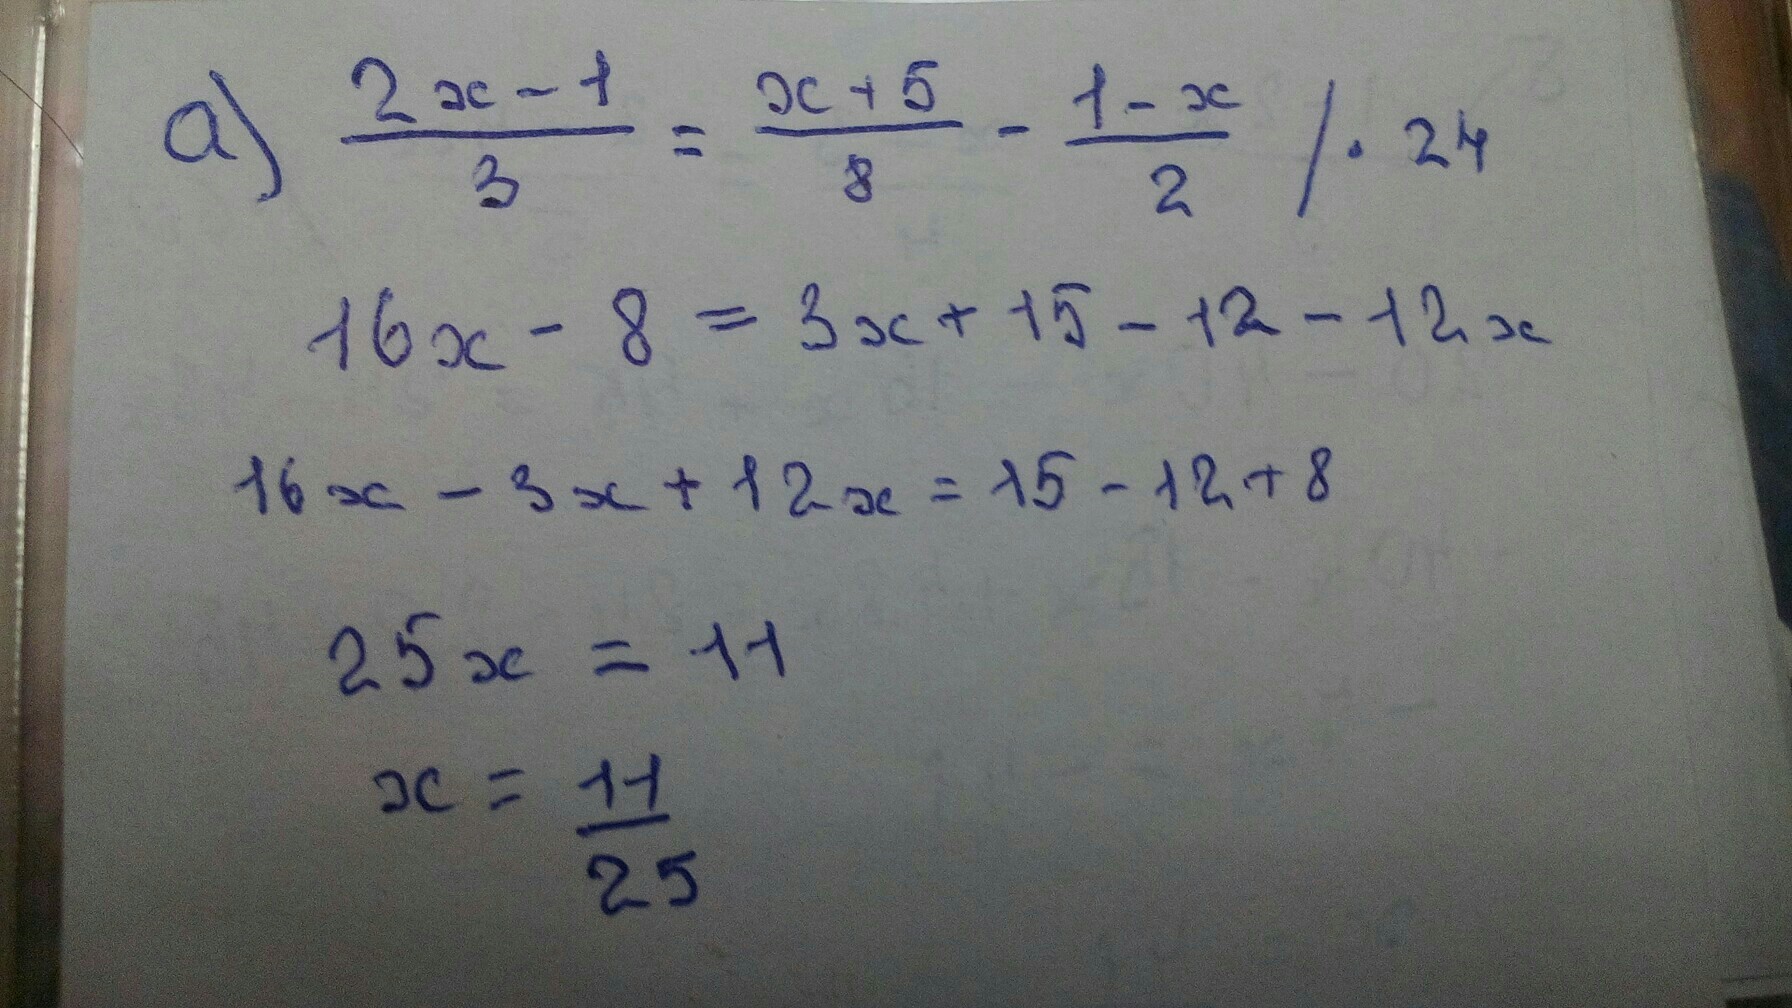 a) (2x-1)/3 = (x+5)/8 - (1-x)/2 /· 24
16x - 8 = 3x + 15 - 12 - 12x
16x - 3x + 12x = 15 - 12 + 8
25x = 11
x = 11/25